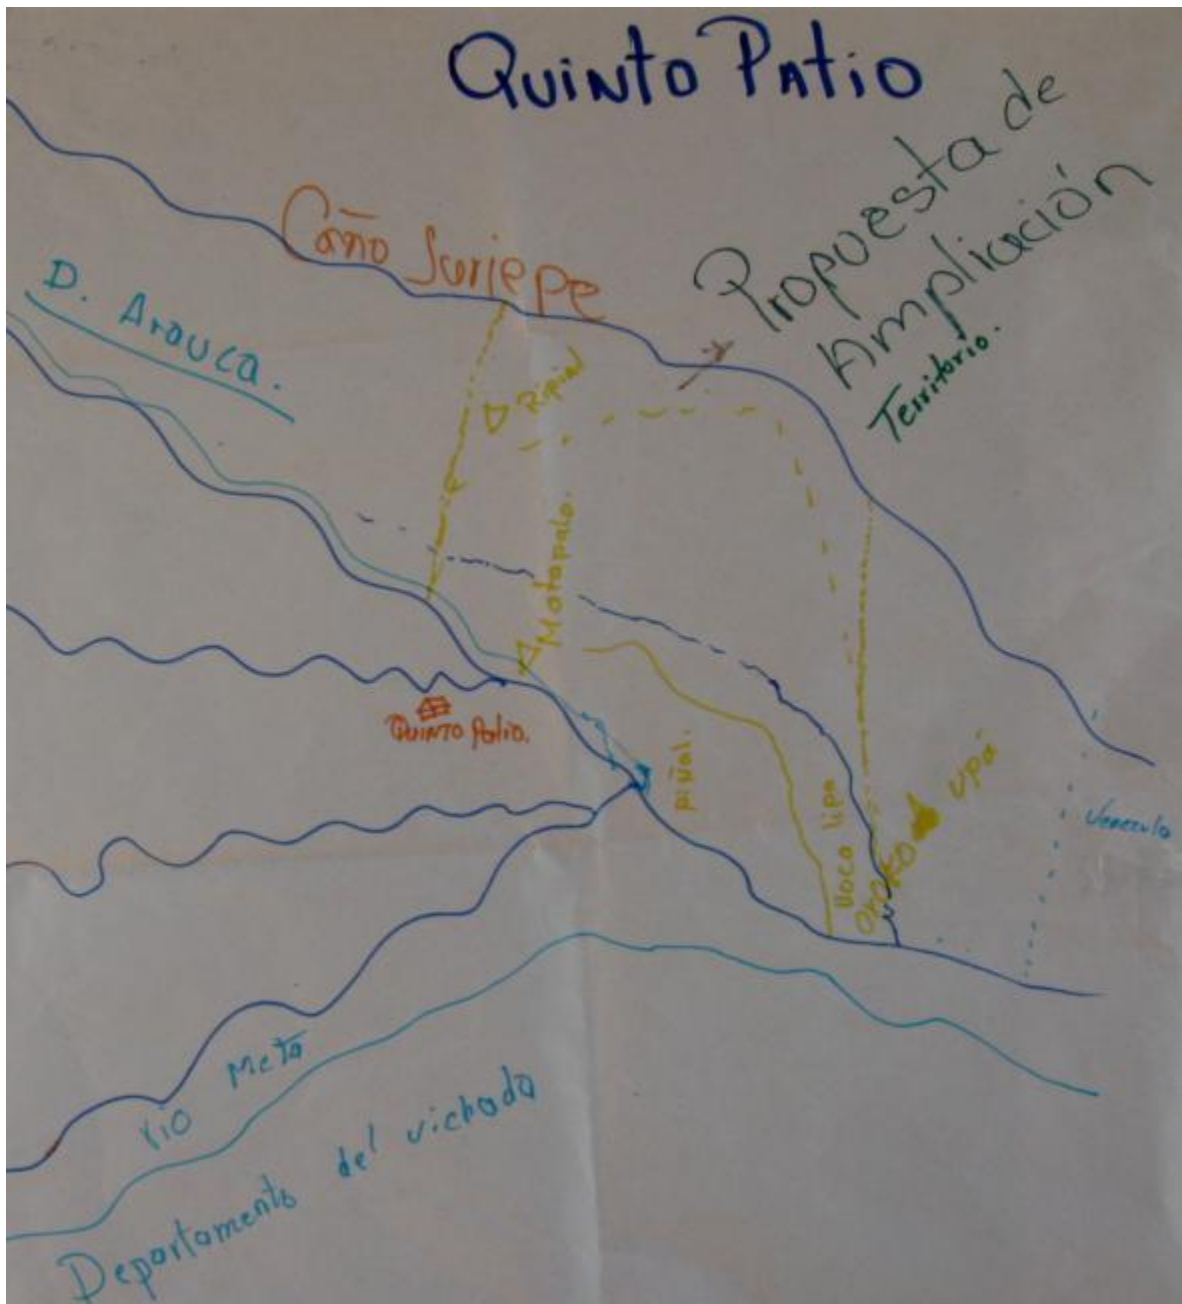 Quinto Patio
Propuesta de
Ampliación
Territorio.
Caño Juriepe
D. Arauca.
Matapalo.
Quinto Patio.
Piñal.
upá
rio Meta
Departamento del vichada